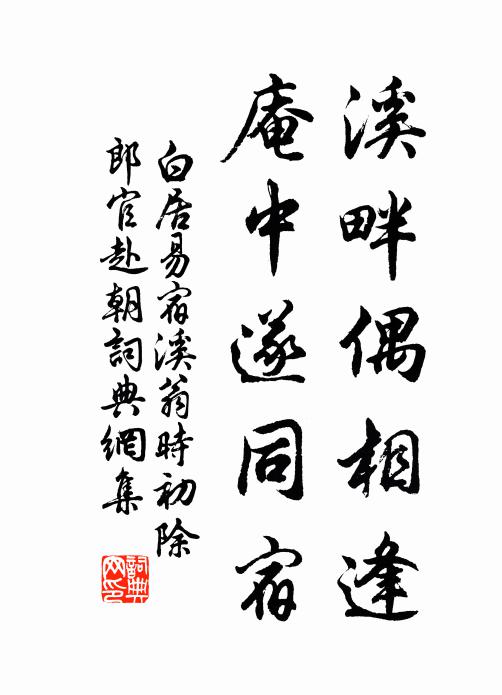 溪畔偶相逢
庵中遂同宿
白居易宿溪翁時初除
郎官赴朝詞典網集
詞典網印